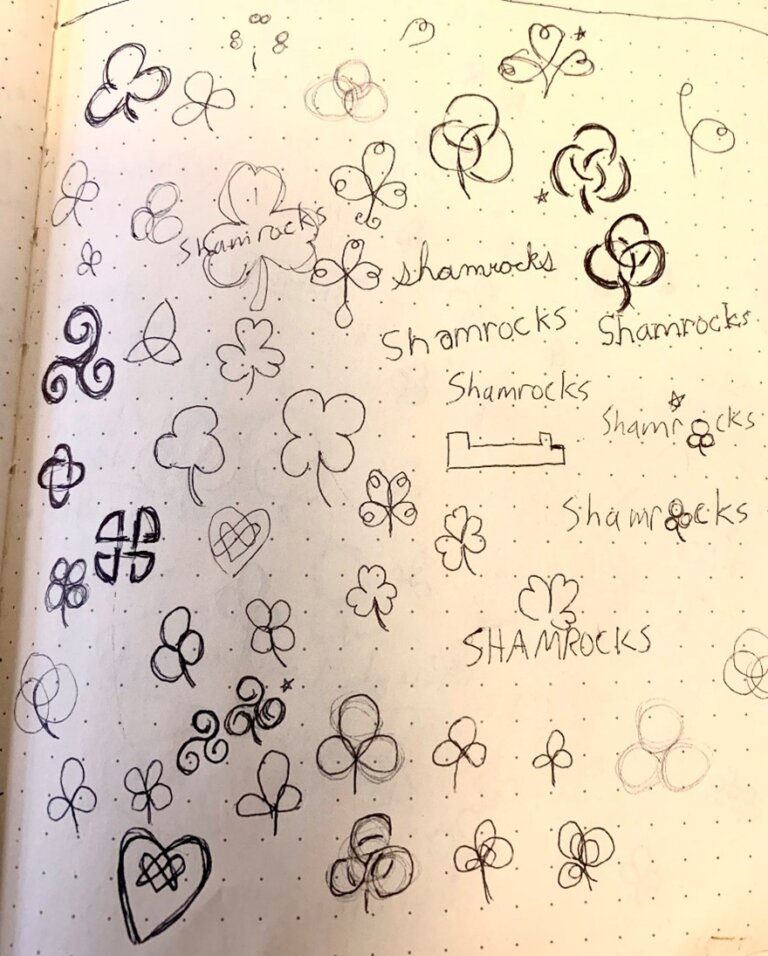 Shamrocks
shamrocks
Shamrocks
Shamrocks
Shamrocks
Shamrocks
Shamrocks
SHAMROCKS